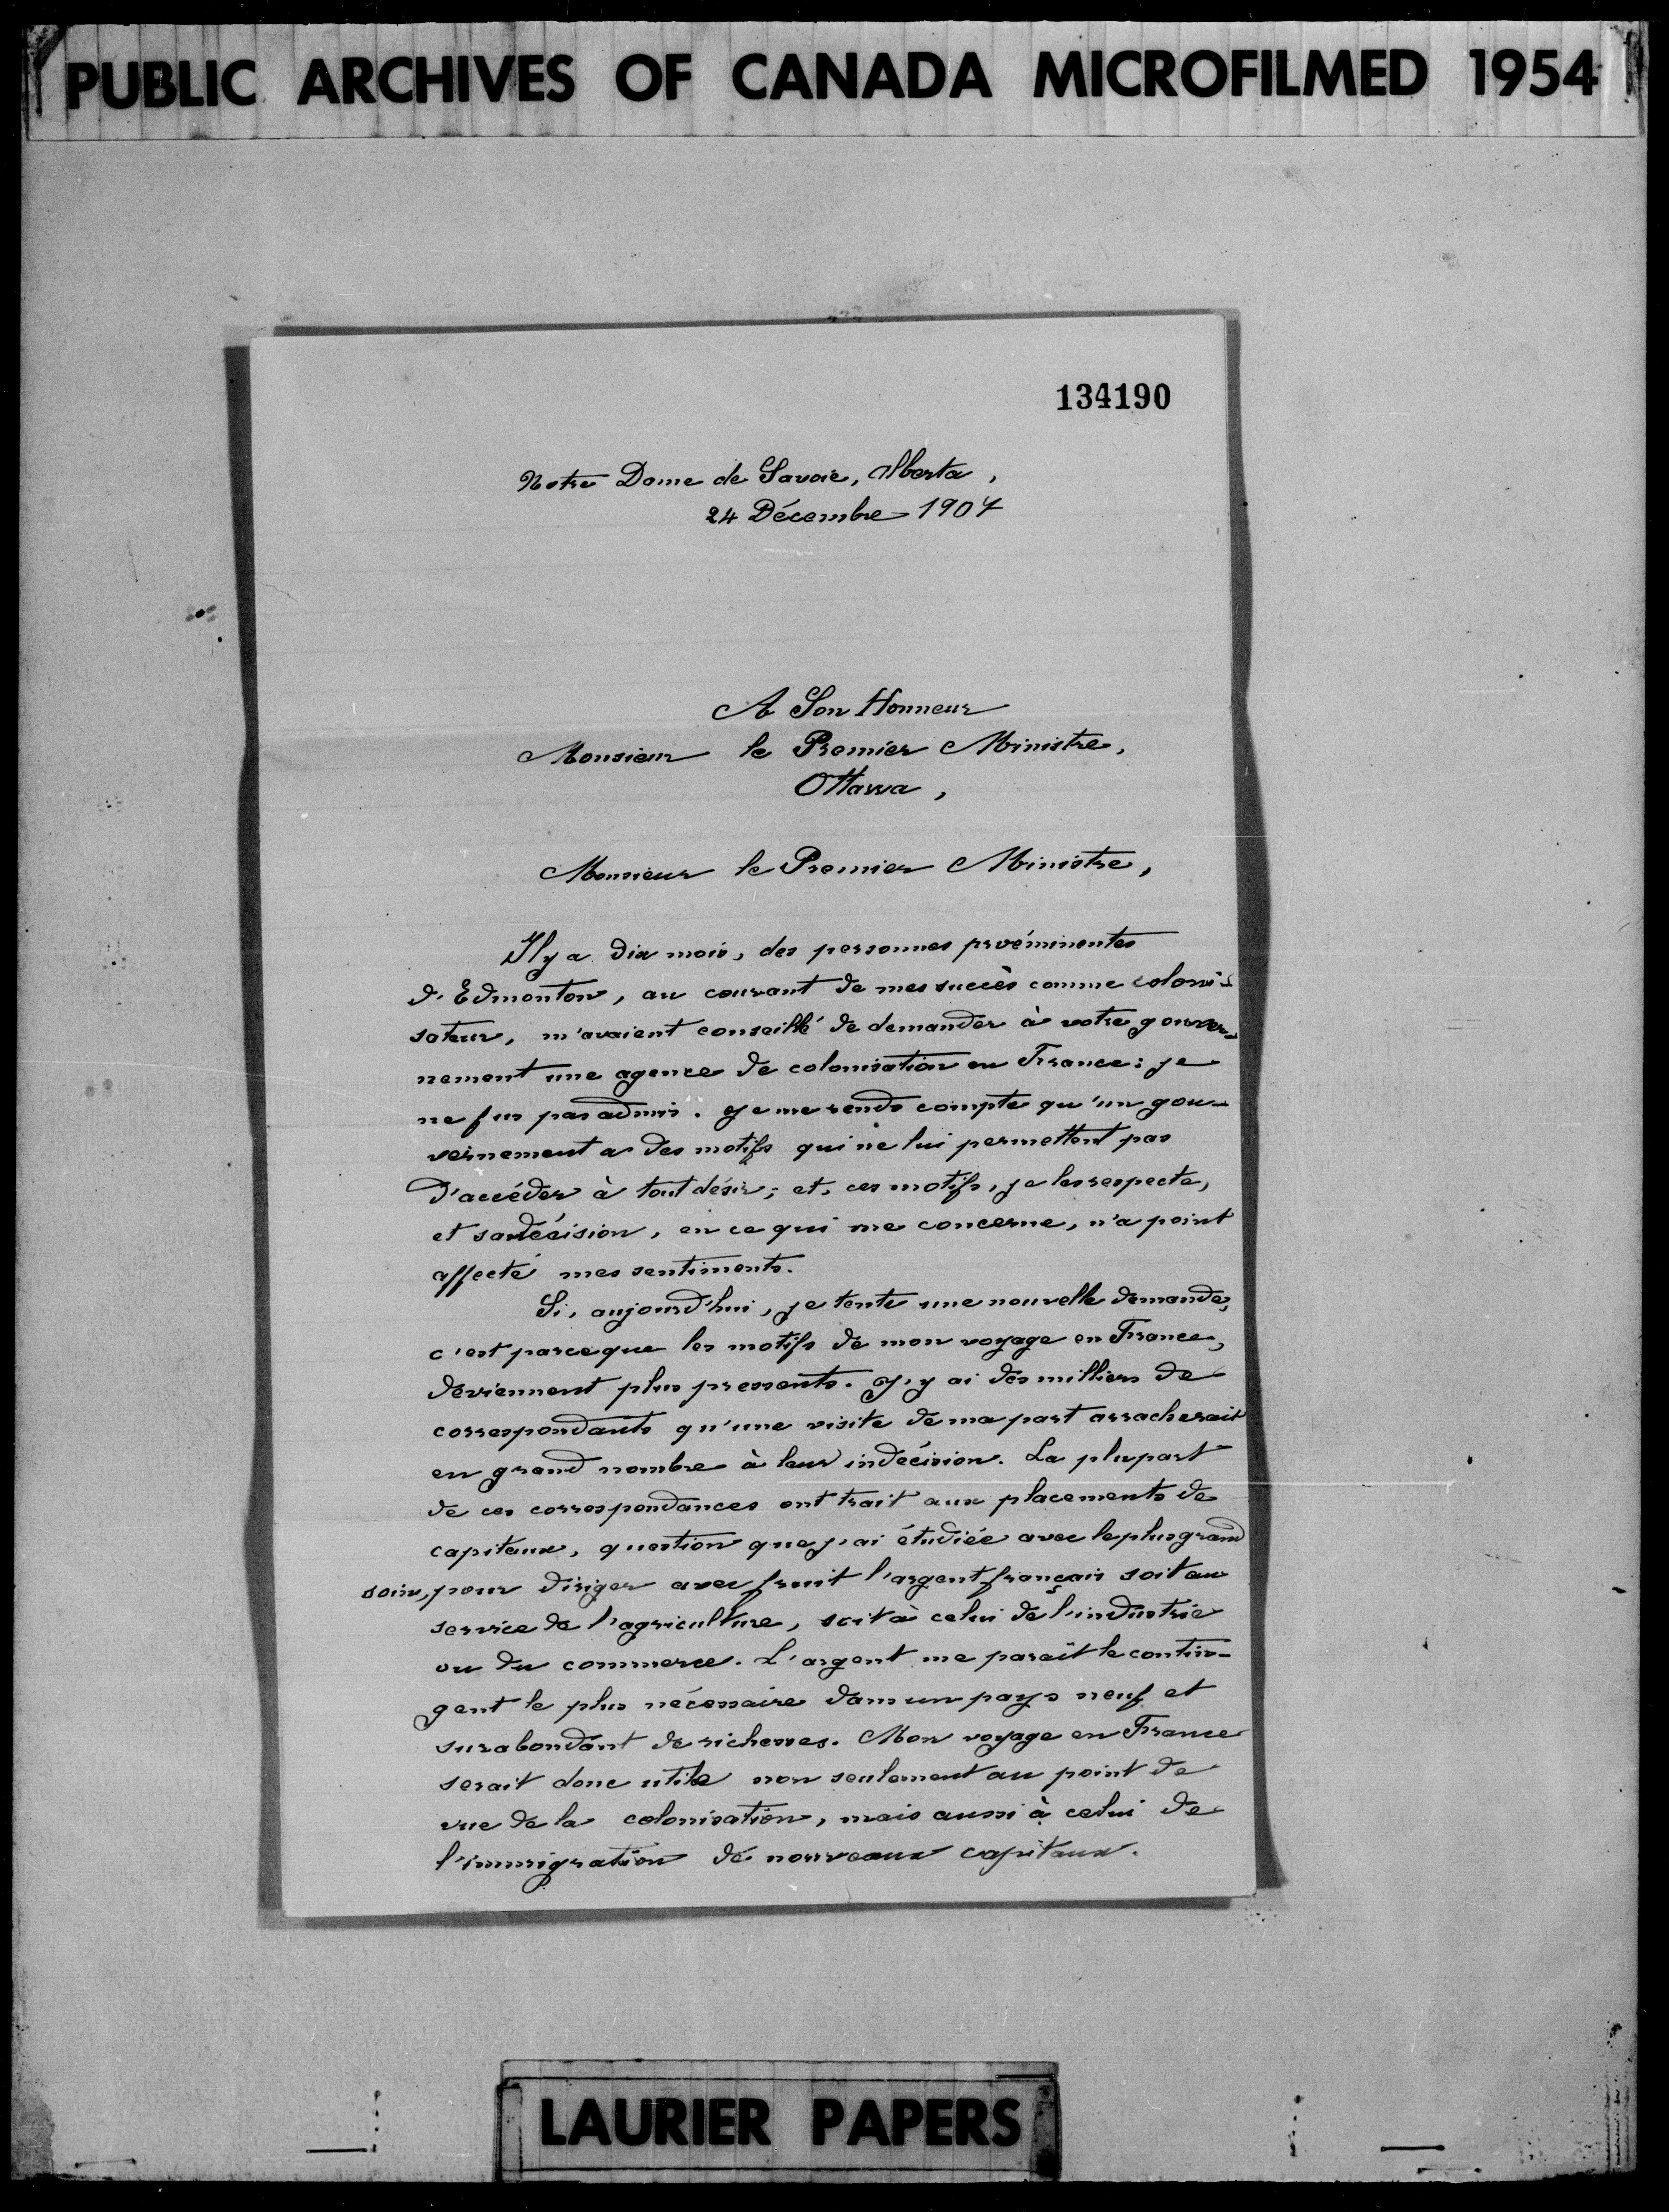 PUBLIC ARCHIVES OF CANADA MICROFILMED 1954
134190
Notre Dame de Savoie, Alberta,
24 Décembre 1907
A Son Honneur
Monsieur le Premier Ministre,
Ottawa,
Monsieur le Premier Ministre,
Il y a dix mois, des personnes proéminentes
d'Edmonton, au courant de mes succès comme coloni-
sateur, m'avaient conseillé de demander à votre gouver-
nement une agence de colonisation en France: je
ne fus pas admis. Je me rends compte qu'un gou-
vernement a des motifs qui ne lui permettent pas
d'accéder à tout désir; et, ces motifs, je les respecte,
et sa décision, en ce qui me concerne, n'a point
affecté mes sentiments.
Si, aujourd'hui, je tente une nouvelle demande,
c'est parceque les motifs de mon voyage en France,
deviennent plus pressents. J'y ai des milliers de
correspondants qu'une visite de ma part arracherait
en grand nombre à leur indécision. La plupart
de ces correspondances ont trait aux placements de
capitaux, question que j'ai étudiée avec le plus grand
soin, pour diriger avec fruit l'argent français soit au
service de l'agriculture, soit à celui de l'industrie
ou du commerce. L'argent me paraît le contin-
gent le plus nécessaire dans un pays neuf et
surabondant de richesses. Mon voyage en France
serait donc utile non seulement au point de
vue de la colonisation, mais aussi à celui de
l'immigration de nouveaux capitaux.
LAURIER PAPERS